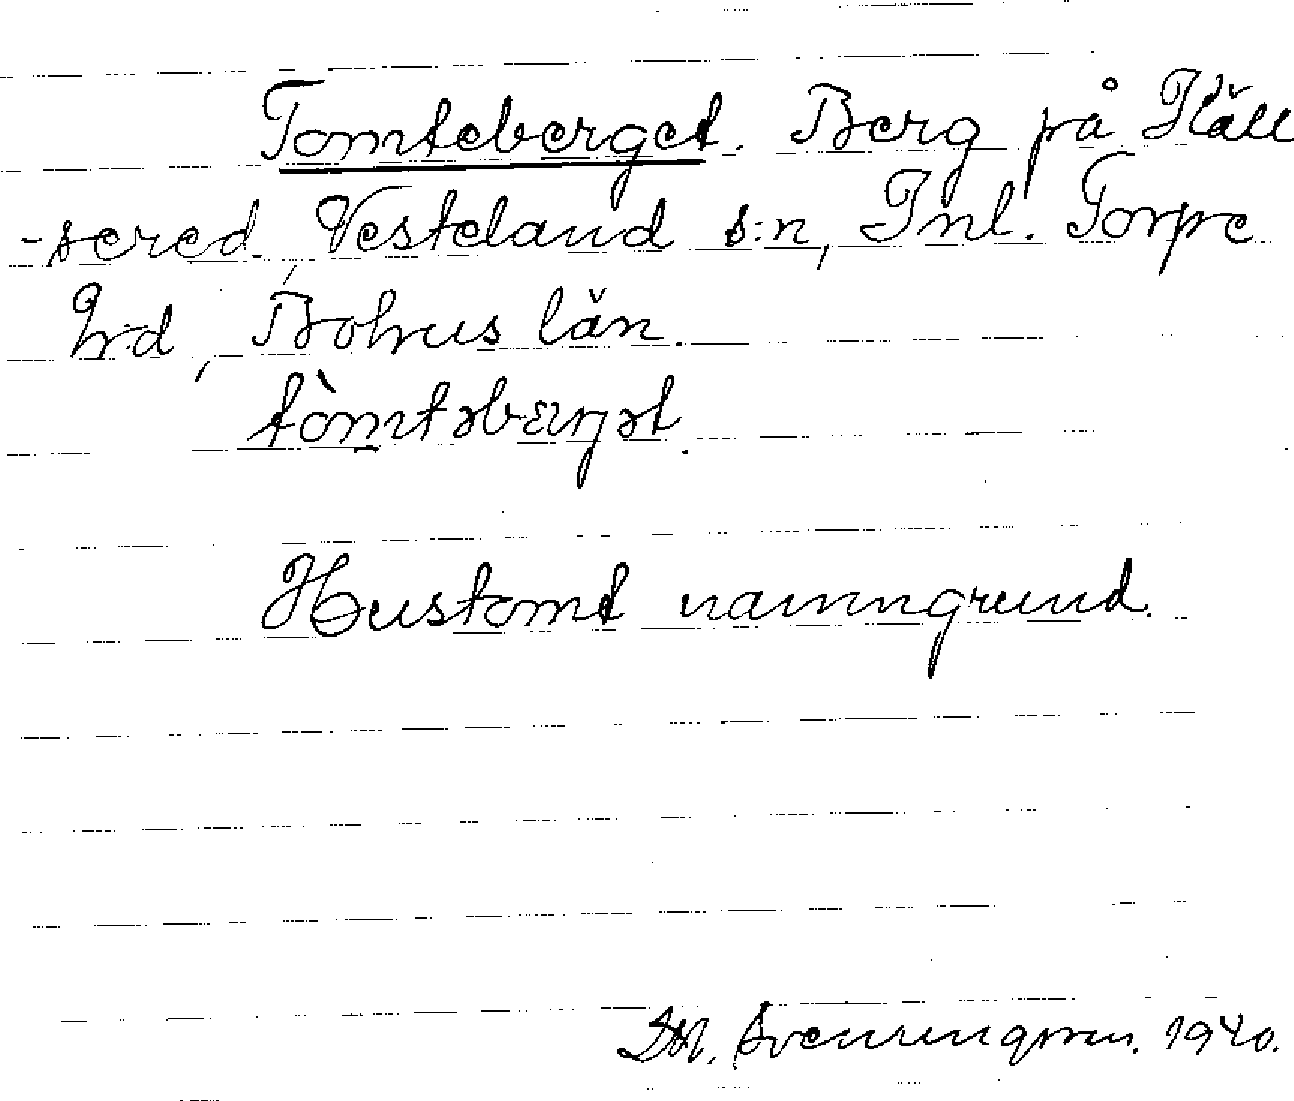 Tomteberget. Berg på Häll
-sered, Vesteland s:n, Inl. Torpe
hd, Bohus län.
tòmtəbærŋət.
Hustomt namngrund.
1940.